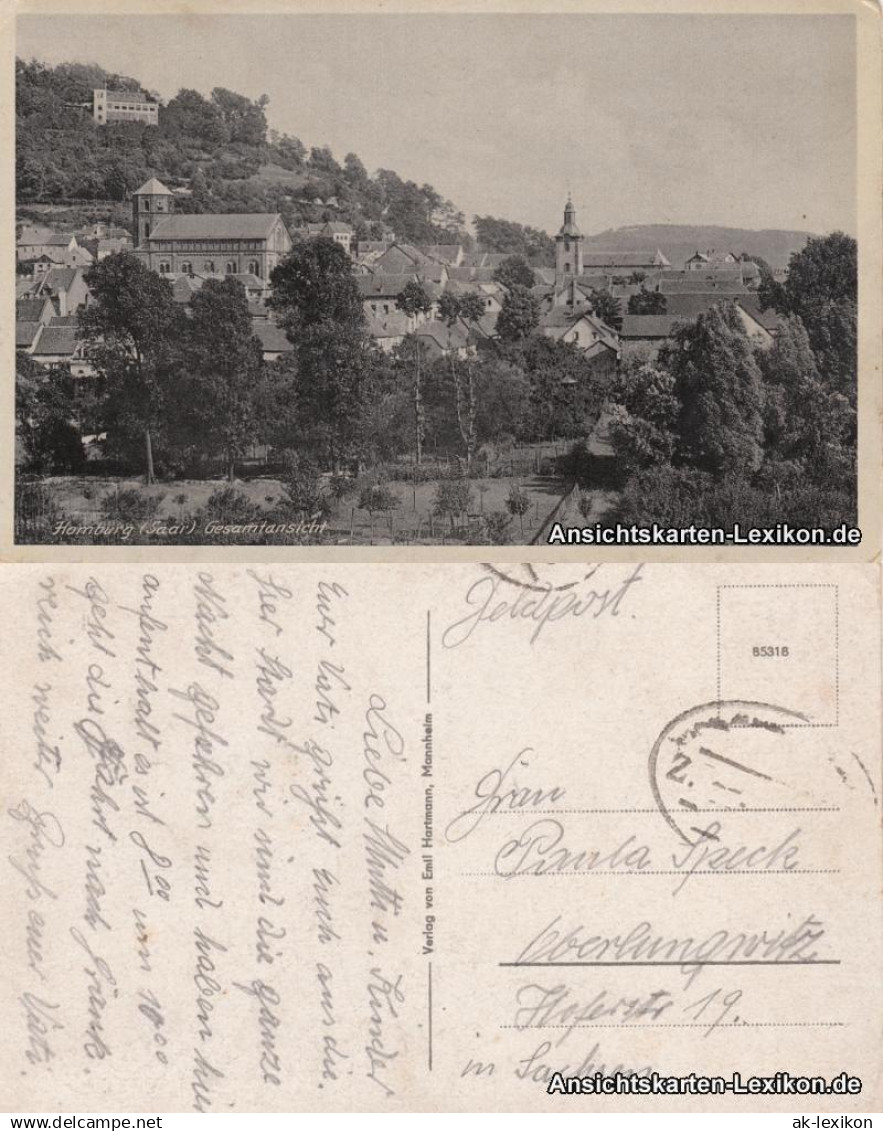 Homburg (Saar) Gesamtansicht
Ansichtskarten-Lexikon.de
Feldpost.
85318
Frau
Paula Speck
Oberlungwitz
Hoferstr 19.
in Sachsen
Verlag von Emil Hartmann, Mannheim
Liebe Mutti u. Kinder
Euer Vati grüßt Euch aus die.
ser Stadt wir sind die ganze
Nacht gefahren und haben hier
aufenthalt es ist 8 00 um 10 00
geht die Fahrt nach Frank.
reich weiter Gruß euer Vati.
Ansichtskarten-Lexikon.de
ak-lexikon